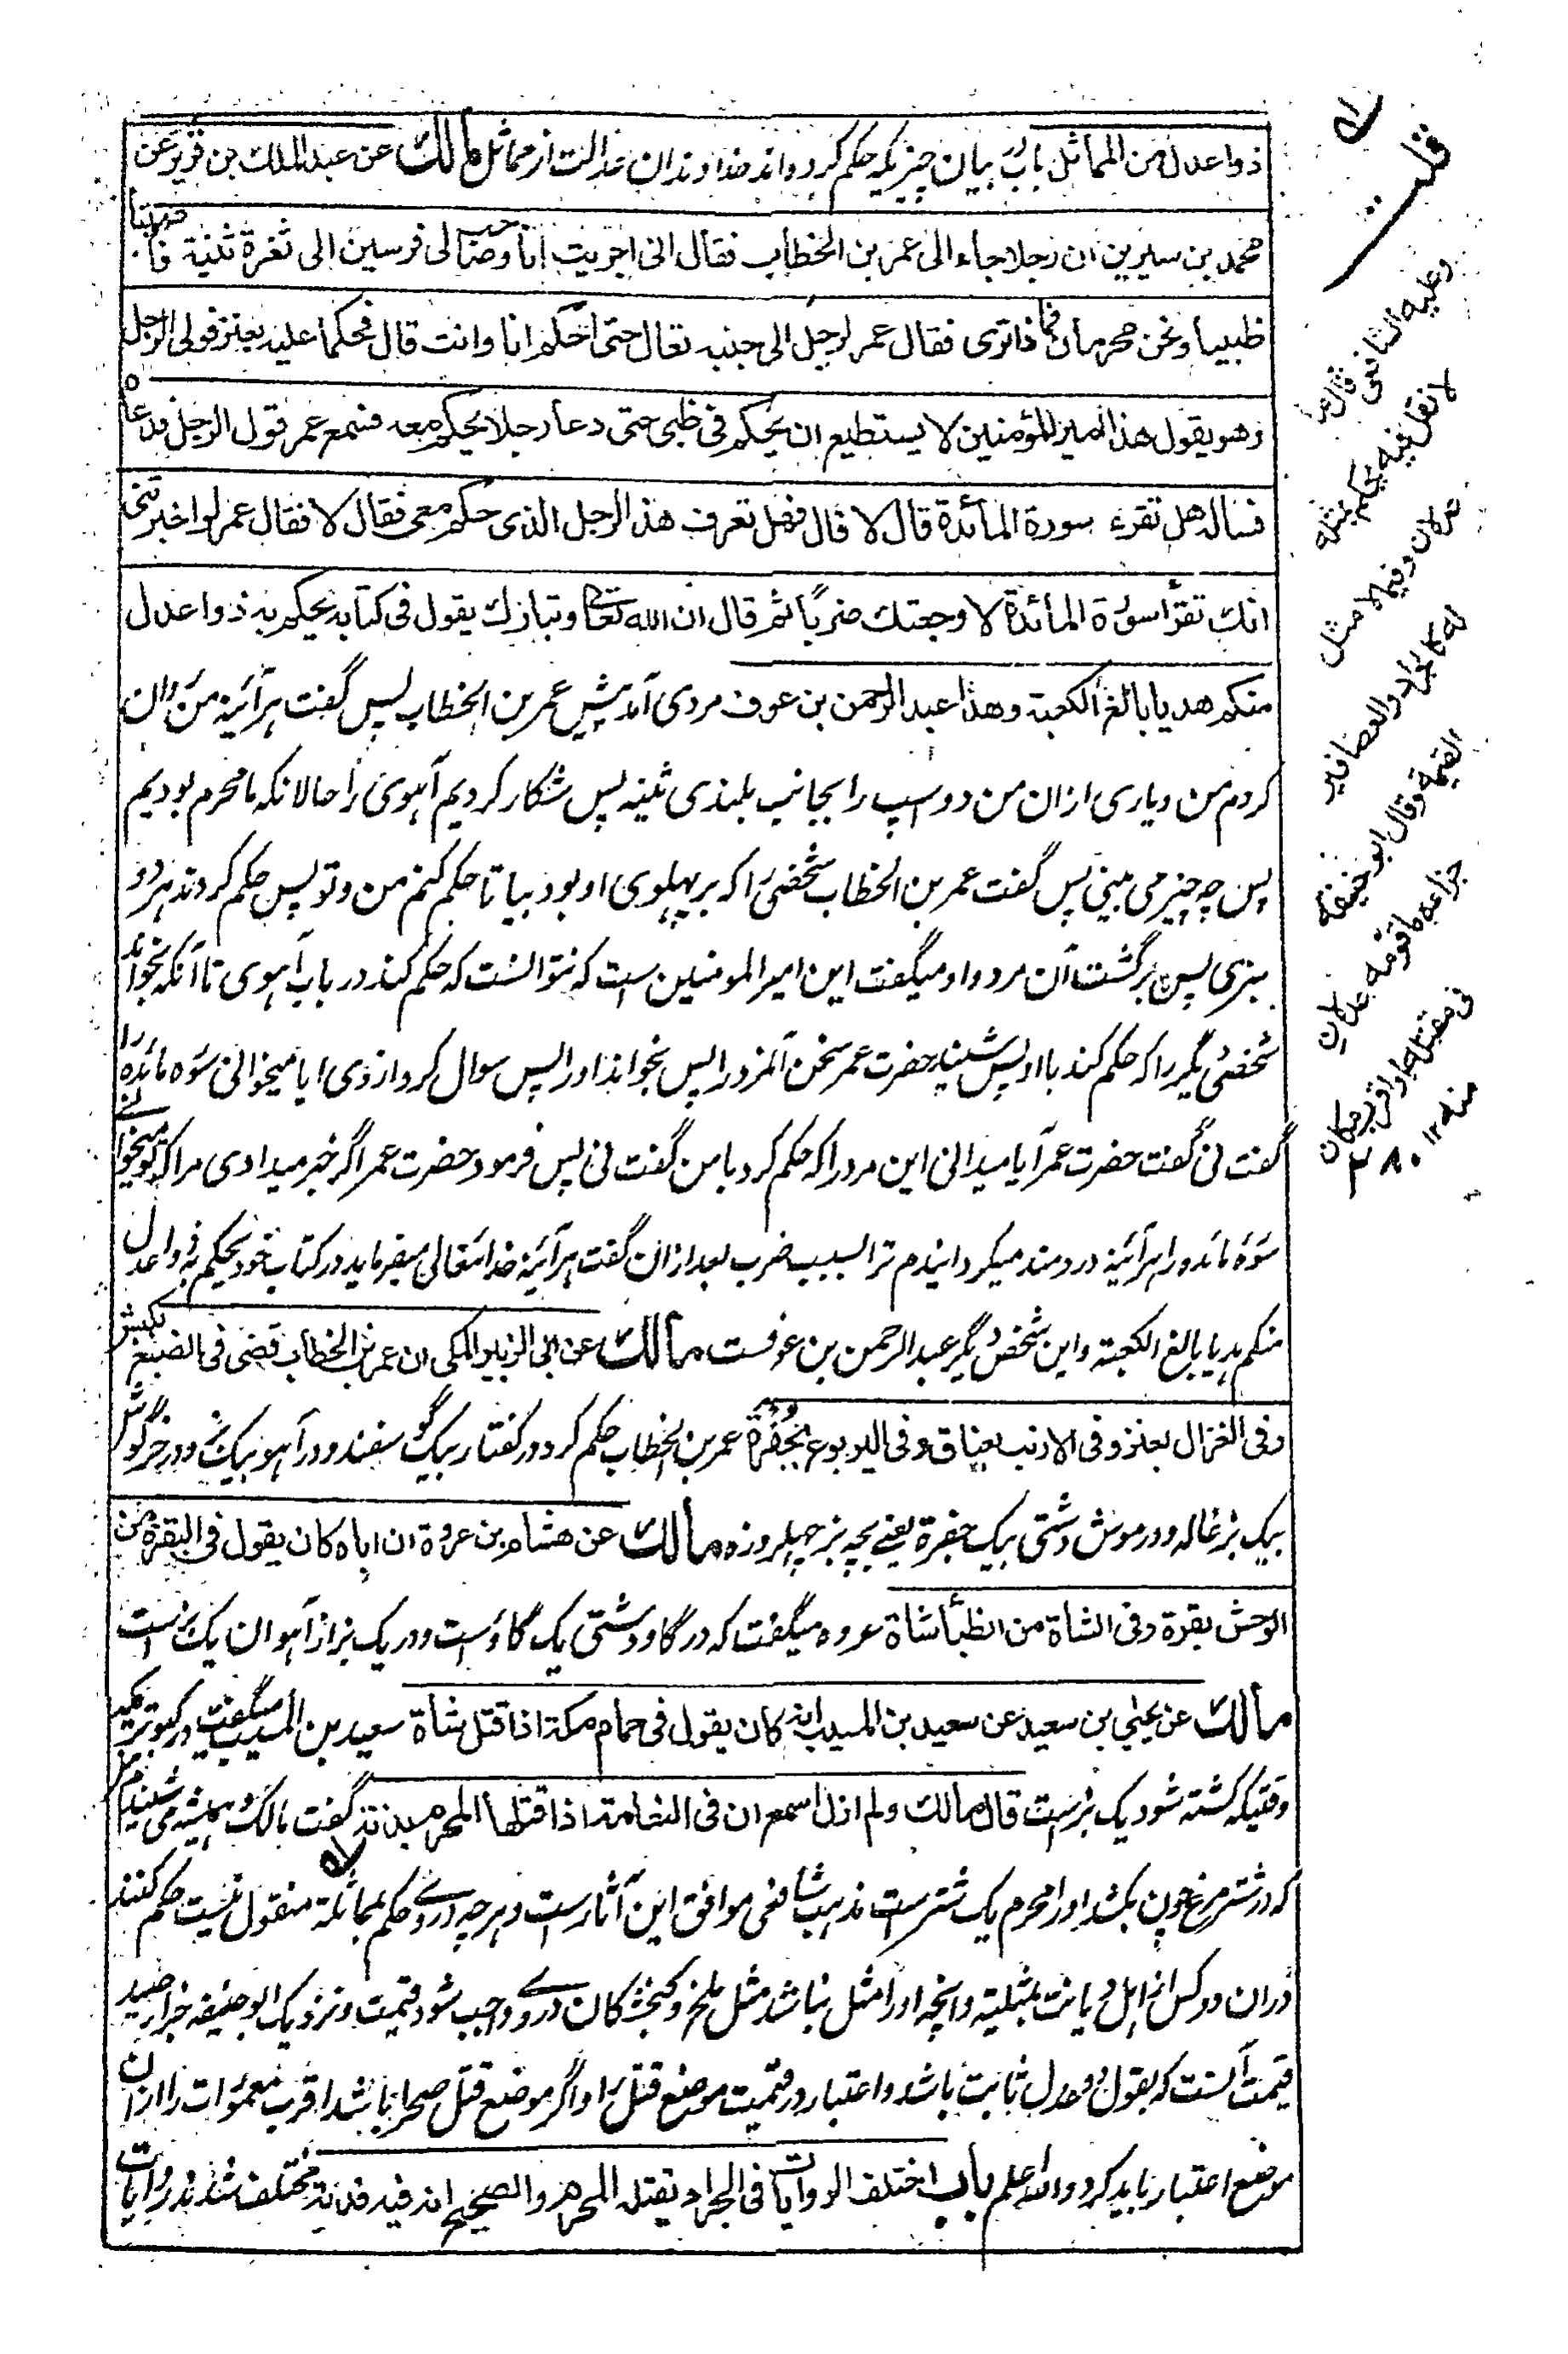 ذوا عدل من المماثل باب بیان چیزیکه حکم کرده اند خداوندان عدالت از مماثل مالك عن عبد الملك بن قریر عن
محمد بن سیرین ان رجلا جاء الی عمر بن الخطاب فقال انی اجریت انا وصاحب لی فرسین الی ثغرة ثنیة فاصبنا
ظبیا ونحن محرمان فماذا تری فقال عمر لرجل الی جنبه تعال حتی احکم انا وانت قال فحکما علیه بعنز فولی الرجل
وهو یقول هذا امیر المؤمنین لا یستطیع ان یحکم فی ظبی حتی دعا رجلا یحکم معه فسمع عمر قول الرجل فدعاه
فساله هل تقرء سورة المائدة قال لا قال فهل تعرف هذا الرجل الذی حکم معی فقال لا فقال عمر لو اخبرتنی
انك تقرأ سورة المائدة لاوجعتك ضربا ثم قال ان الله تعالی وتبارك یقول فی کتابه یحکم به ذوا عدل
منکم هدیا بالغ الکعبة وهذا عبد الرحمن بن عوف مردی آمد پیش عمر بن الخطاب پس گفت هر آئینه من دوان
کردم من ویاری ازان من دو اسپ را بجانب بلندی ثنیه پس شکار کردیم آهوی را حالانکه ما محرم بودیم
پس چه چیز می بینی پس گفت عمر بن الخطاب شخصی را که بر پهلوی او بود بیا تا حکم کنم من وتو پس حکم کردند هر دو
ببزی پس برگشت آن مرد واو میگفت این امیر المومنین ست که نتوانست که حکم کند در باب آهوی تا آنکه بخواند
شخصی دیگر را که حکم کند با او پس شنید حضرت عمر سخن آنمرد را پس بخواند او را پس سوال کرد از وی ایا میخوانی سوره مائده را
گفت نی گفت حضرت عمر آیا میدانی این مرد را که حکم کرد با من گفت نی پس فرمود حضرت عمر اگر خبر میدادی مرا که تو میخوانی
سوره مائده را هر آئینه دردمند میگردانیدم ترا بسبب ضرب بعد ازان گفت هر آئینه خدا تعالی میفرماید در کتاب خود یحکم به ذوا عدل
منکم هدیا بالغ الکعبة واین شخص دیگر عبد الرحمن بن عوفست مالك عن ابی الزبیر المکی ان عمر بن الخطاب قضی فی الضبع بکبش
وفی الغزال بعنز وفی الارنب بعناق وفی الیربوع بجفرة عمر بن الخطاب حکم کرد در کفتار بیک گوسفند ودر آهو بیک بز ودر خرگوش
بیک بزغاله ودر موش دشتی بیک جفرة یعنے بچه بز چهل روزه مالك عن هشام بن عروة ان اباه کان یقول فی البقرة من
الوحش بقرة وفی الشاة من الظبا شاة عروه میگفت که در گاو دشتی یک گاو ست ودر یک بز از آهوان یک بز است
مالك عن یحیی بن سعید عن سعید بن المسیب انه کان یقول فی حمام مکة اذا قتل شاة سعید بن المسیب میگفت در کبوتر مکه
وقتیکه کشته شود یک بز ست قال مالك ولم ازل اسمع ان فی النعامة اذا قتلها المحرم بدنة گفت مالک وهمیشه می شنیدم
که در شتر مرغ چون بکشد او را محرم یک شتر ست مذهب شافعی موافق این آثار ست وهر چه در وے حکم بمماثلة منقول نیست حکم کنند
دران دو کس از اهل دیانت بمثلیة وانچه او را مثل نباشد مثل ملخ وکنجشکان در وے واجب شود قیمت ونزدیک ابو حنیفه جزاء صید
قیمت آنست که بقول دو عدل ثابت باشد واعتبار در قیمت موضع قتل را واگر موضع قتل صحرا باشد اقرب معمورات را ازان
موضع اعتبار باید کرد والله اعلم باب اختلف الروایات فی الجراد یقتله المحرم والصحیح انه فیه فدیة مختلف شدند روایات
له قلت
وعلیه الشافعی قال
لا نقل فیه یحکم بمثله
عدلان وفیما لا مثل
له کالجراد والعصافیر
القیمة وقال ابو حنیفة
جزاءه ما قومه عدلان
فی مقتله او اقرب مکان
منه ۱۲